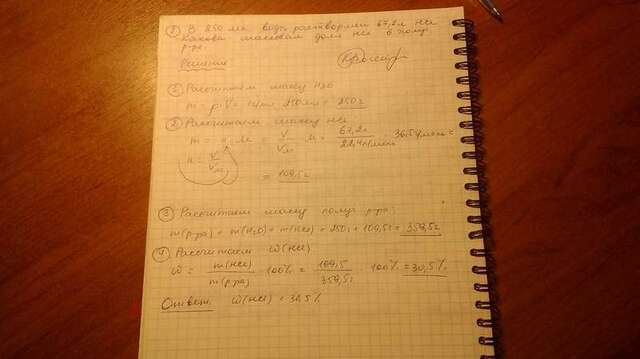 В 250 мл воды растворили 67,2 л HCl
Какова массовая доля HCl в получ.
р-ре.
Решение
① Рассчитаем массу H2O
m = ρ·V = 1 г/мл · 250 мл = 250 г
② Рассчитаем массу HCl
m = n · M = V/Vm · M = 67,2 л / 22,4 л/моль · 36,5 г/моль =
n = V/Vm
= 109,5 г
③ Рассчитаем массу получ р-ра:
m(р-ра) = m(H2O) + m(HCl) = 250 г + 109,5 г = 359,5 г
④ Рассчитаем ω(HCl)
ω = m(HCl) / m(р-ра) · 100% = 109,5 / 359,5 · 100% = 30,5%
Ответ: ω(HCl) = 30,5%